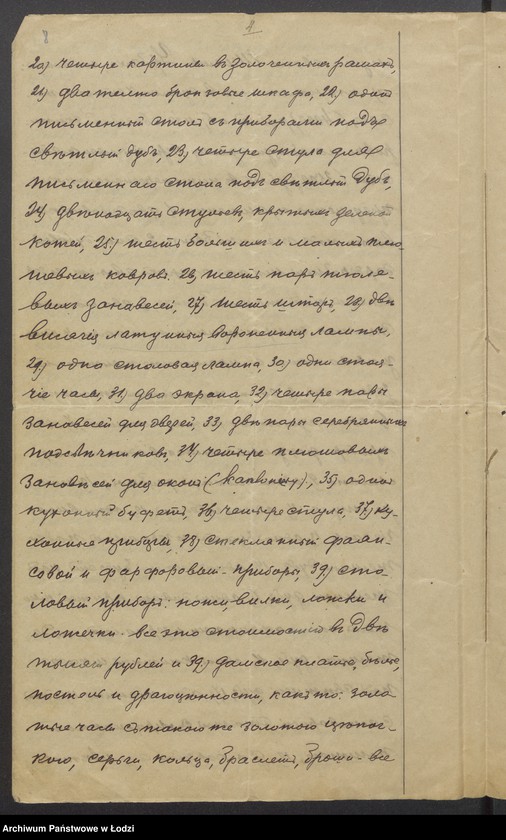 8
20) четыре картины въ золоченныхъ рамахъ,
21) два желто бронзовые шкафа, 22) одинъ
письменный столъ съ приборами подъ
свѣтлый дубъ, 23) четыре стула для
письменнаго стола подъ свѣтлый дубъ,
24) двѣнадцать стульевъ, крытыхъ зеленой
кожей, 25) шесть большихъ и малыхъ плю-
шевыхъ ковровъ. 26) шесть паръ тюле-
выхъ занавесей, 27) шесть шторъ, 28) двѣ
висячія латунныя вороненныя лампы,
29) одна столовая лампа, 30) одни стоя-
чіе часы, 31) два экрана, 32) четыре пары
занавесей для дверей, 33) двѣ пары серебрянныхъ
подсвѣчниковъ, 34) четыре плюшевыхъ
занавѣсей для оконъ 35) одинъ
кухонный буфетъ, 36) четыре стула, 37) ку-
хонные приборы, 38) стеклянный фаян-
совой и фарфоровый приборы, 39) сто-
ловый приборъ: ножи вилки, ложки и
ложечки - все это стоимостью въ двѣ
тысячи рублей и 39) дамское платье, бѣлье,
постель и драгоцѣнности, какъ то: золо-
тые часы съ такою же золотою цѣпоч-
кою, серьги, кольца, браслетъ, брошь - все
Archiwum Państwowe w Łodzi